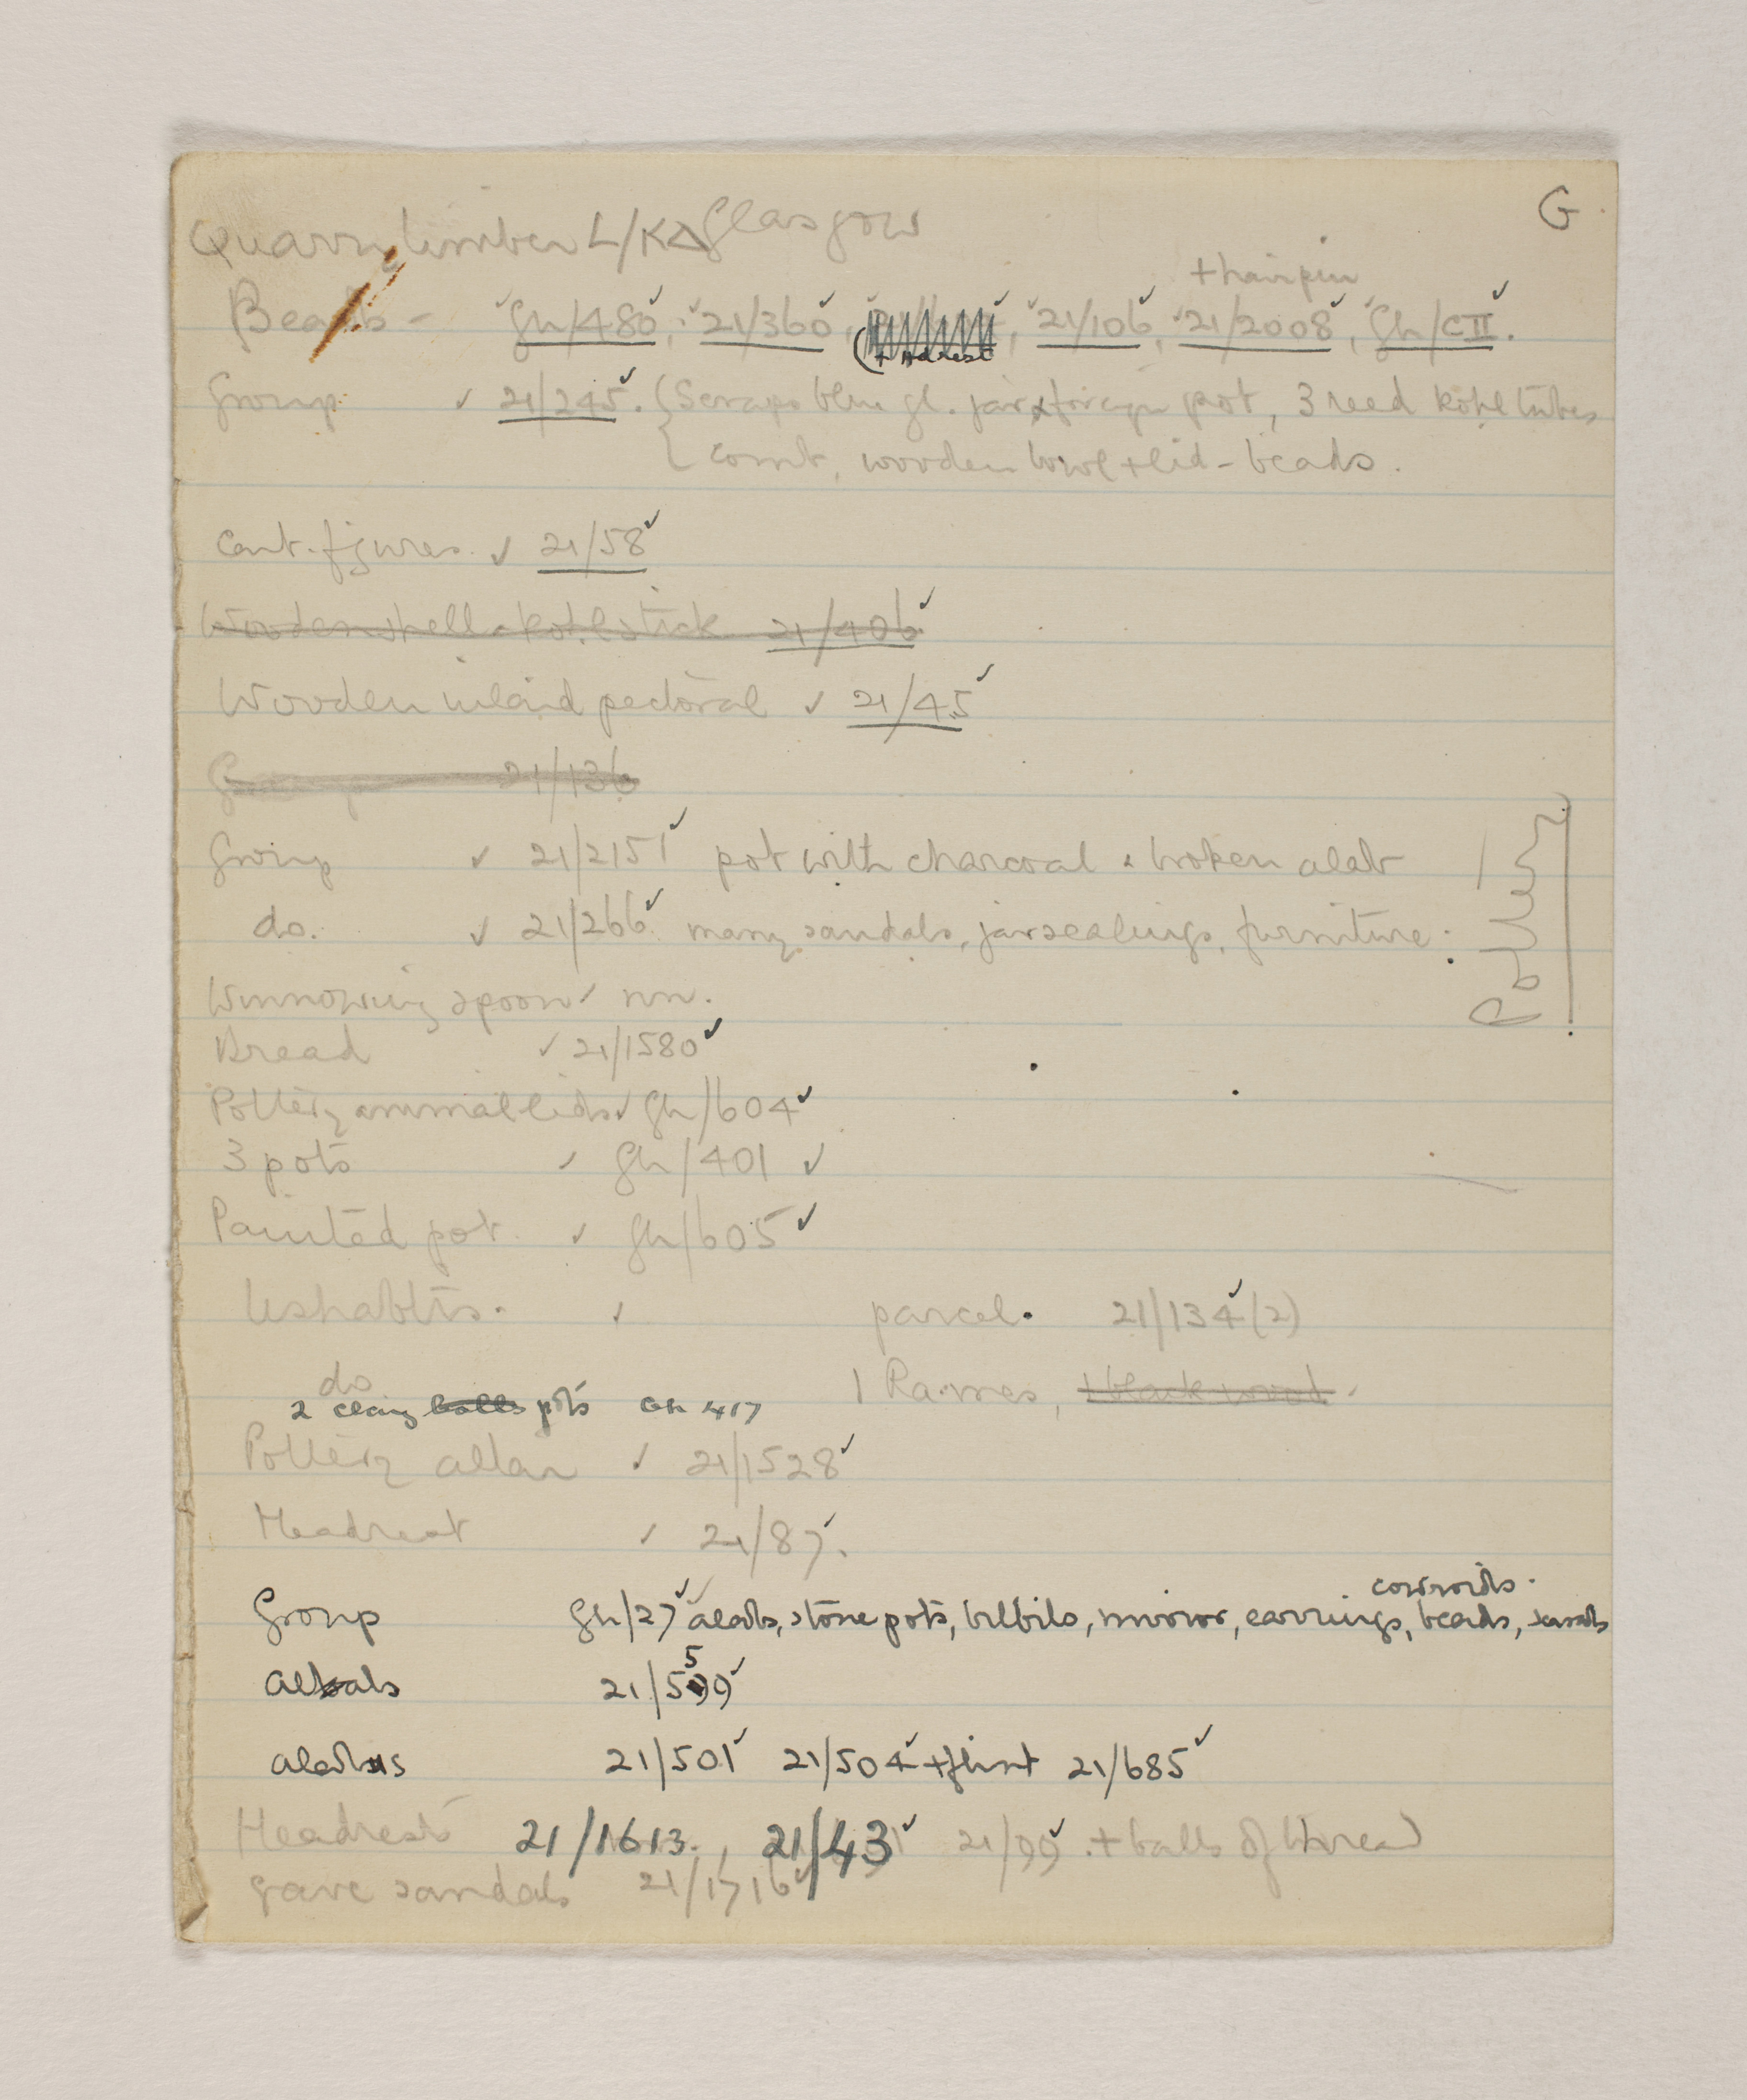 G
Quarry timber L/KΔ Glasgow
+ hairpin
Beads - Gh/480, 21/360, , 21/106, 21/2008, Gh/CII.
(+ Hdrest
Group ✓ 21/245. { Scraps blue gl. jar & foreign pot, 3 reed kohl tubes
{ comb, wooden bowl + lid - beads.
Cont. figures. ✓ 21/58
Wooden shell & kohl stick 21/406
Wooden inlaid pectoral ✓ 21/45
21/136
Group ✓ 21/2151 pot with charcoal & broken alab
do. ✓ 21/266 many sandals, jarsealings, furniture.
Pottery
Winnowing spoon ✓ nn.
Bread ✓ 21/1580
Pottery animal lids ✓ Gh/604
3 pots ✓ Gh/401 ✓
Painted pot ✓ Gh/605
Ushabtis. ✓ parcel. 21/134 (2)
do. 1 Ra-mes, + black wood.
2 clay balls pots Gh 417
Pottery altar ✓ 21/1528
Headrest ✓ 21/87.
cowroids.
Group Gh/27 alabs, stone pots, bilbils, mirror, earrings, beads, scarabs
5
alabs 21/599
alabs 21/501 21/504 + flint 21/685
Headrest 21/1613., 21/43 21/99. + balls of thread
Grave sandals 21/1716